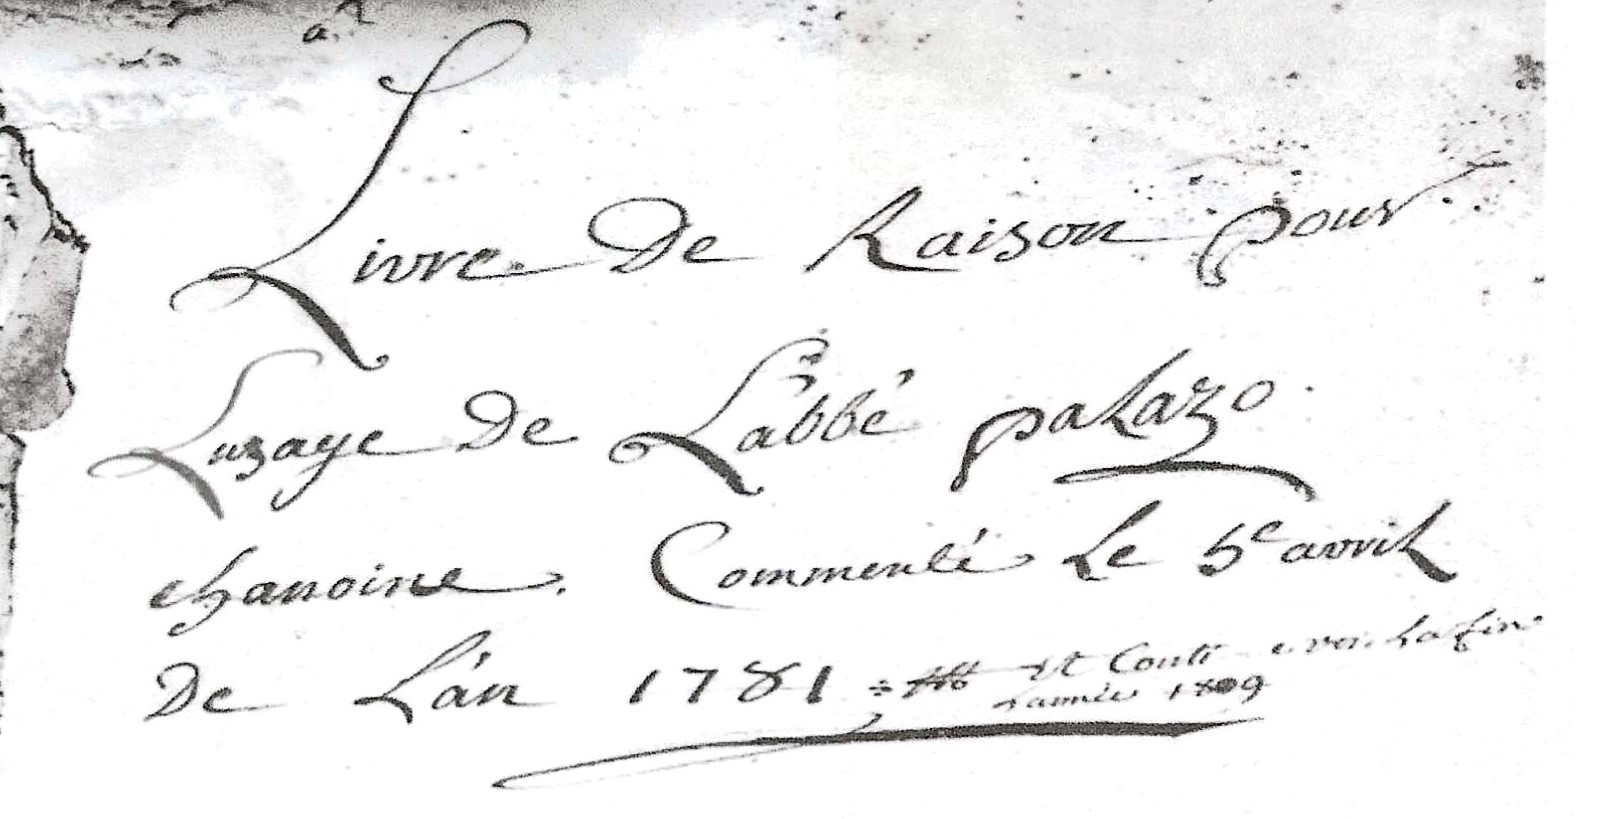 a.
Livre De Raison pour
Luzaye De L'abbé palazo.
chanoine. Commencé Le 5e avril
De L'an 1781
et Conti la fin
L'année 1809